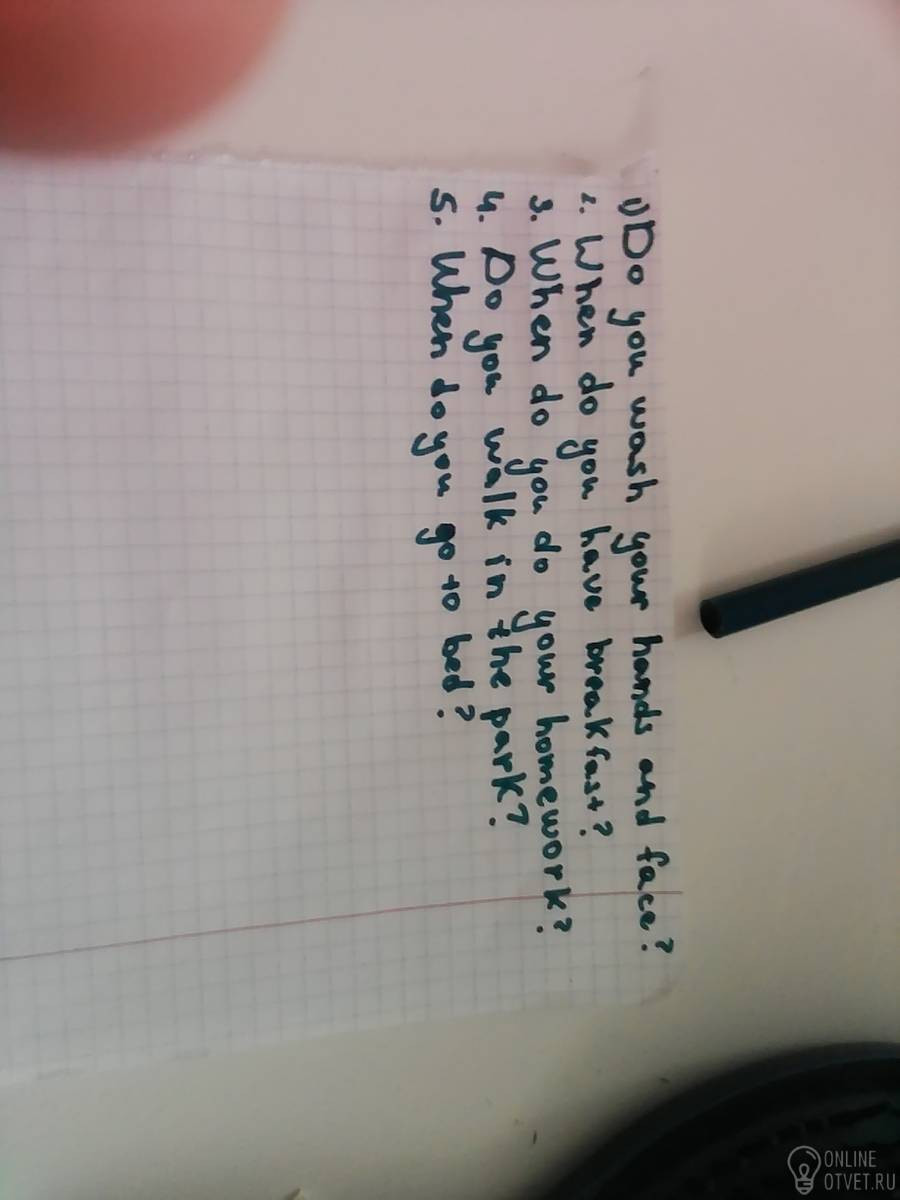 1) Do you wash your hands and face?
2. When do you have breakfast?
3. When do you do your homework?
4. Do you walk in the park?
5. When do you go to bed?
ONLINE
OTVET.RU